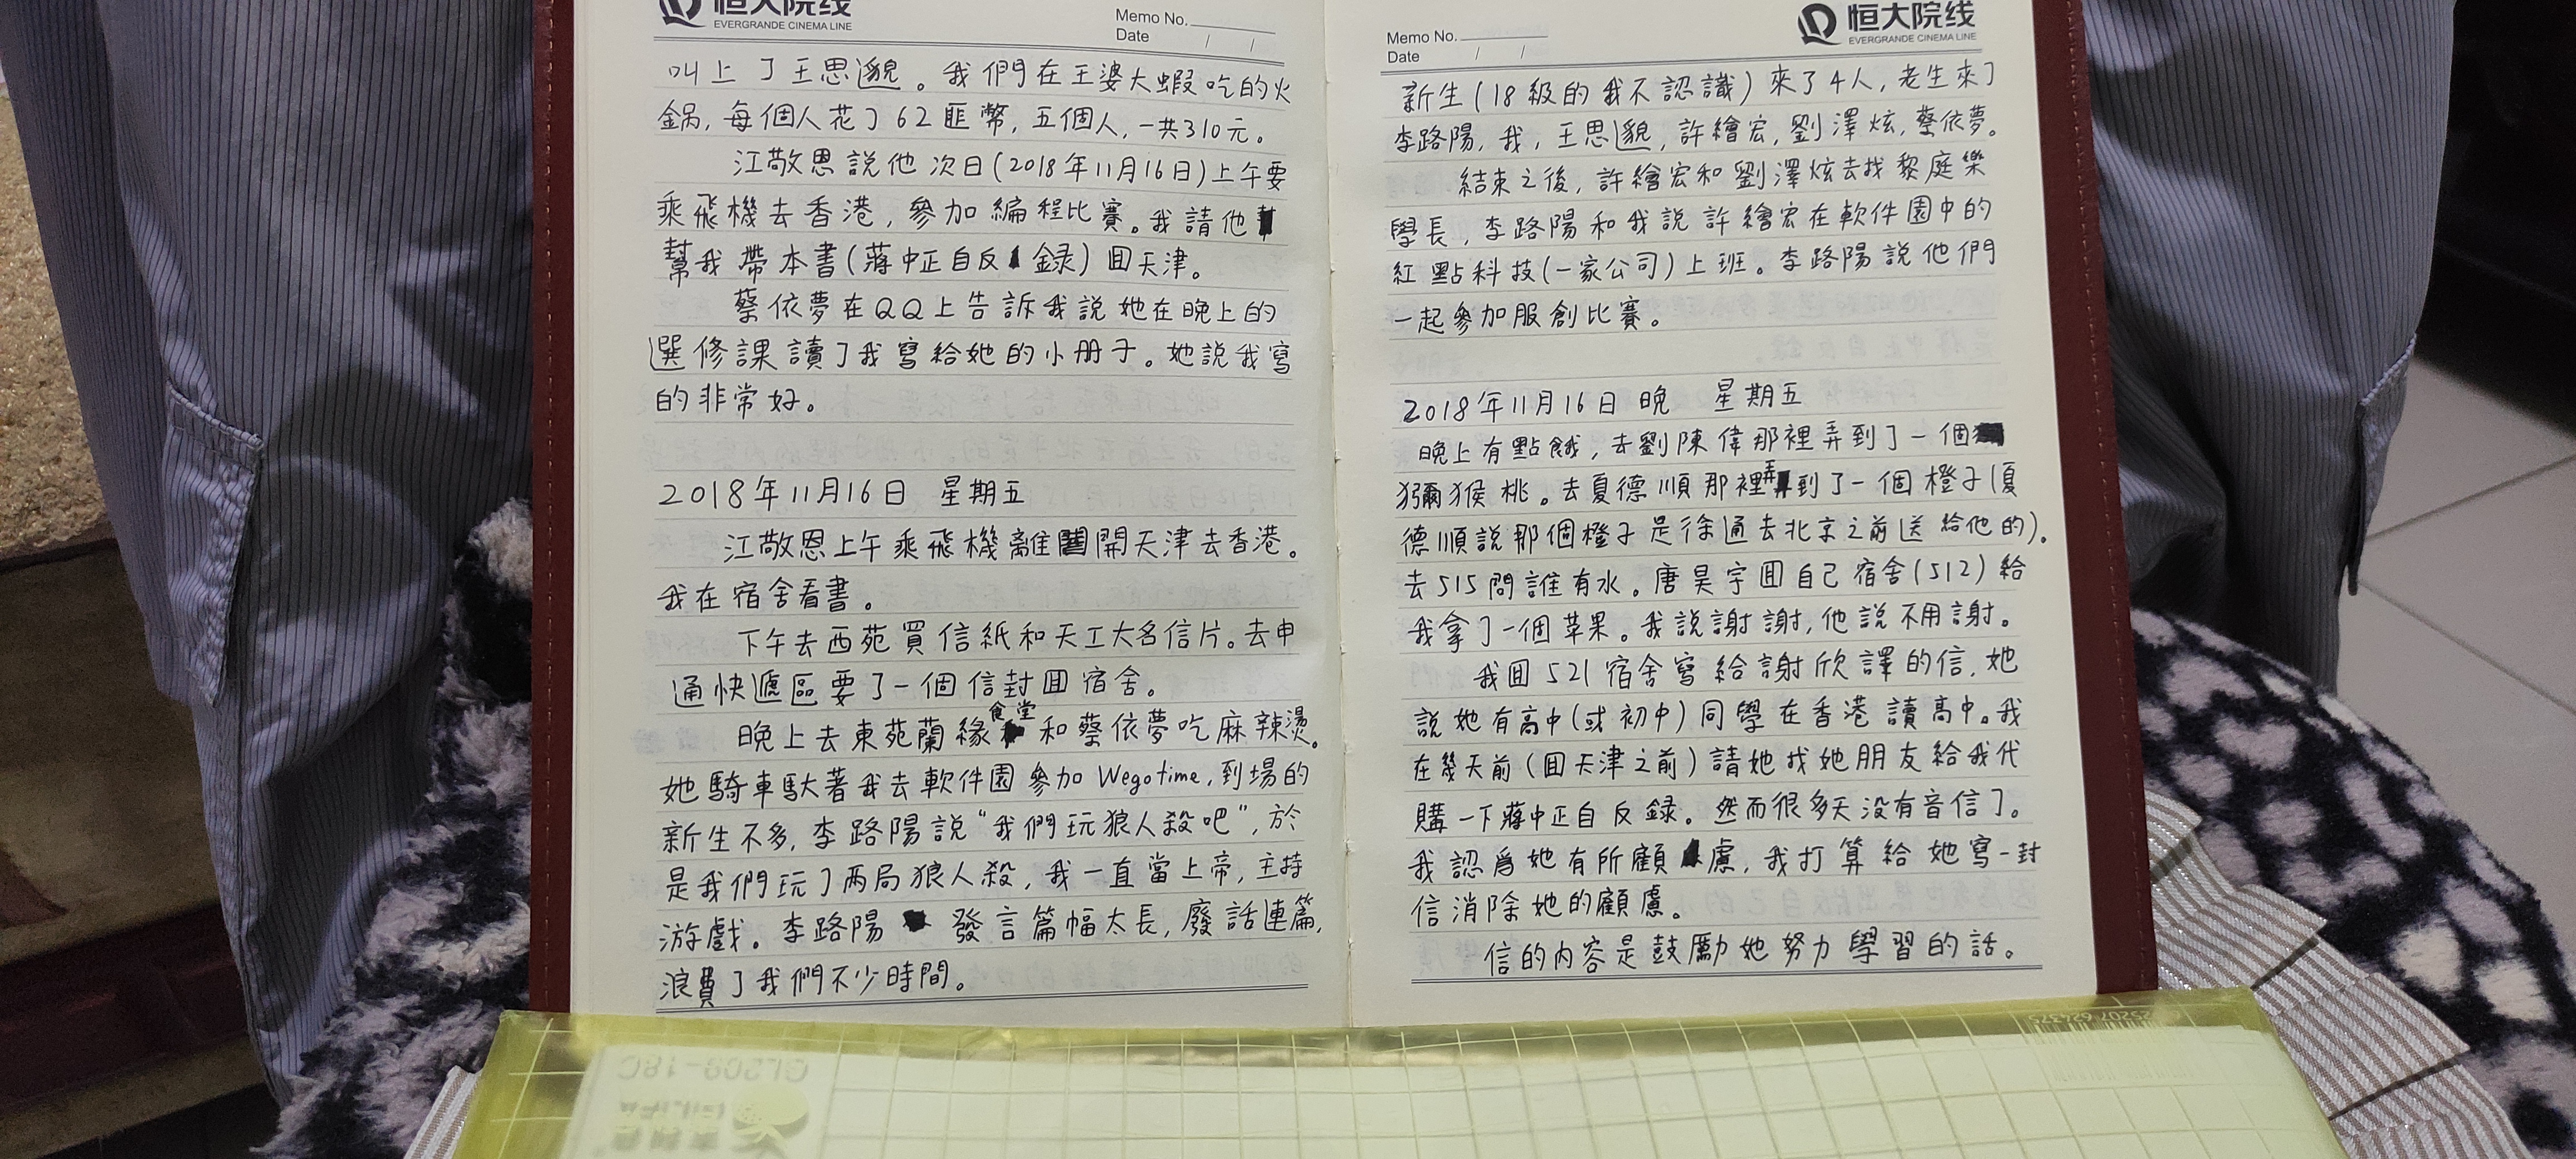 恒大院线
EVERGRANDE CINEMA LINE
Memo No.
Date / /
叫上了王思邈。我們在王婆大蝦吃的火
鍋，每個人花了62匪幣，五個人，一共310元。
江敬恩說他次日(2018年11月16日)上午要
乘飛機去香港，參加編程比賽。我請他
幫我帶本書(蔣中正自反錄)囬天津。
蔡依夢在QQ上告訴我說她在晚上的
選修課讀了我寫給她的小册子。她說我寫
的非常好。
2018年11月16日 星期五
江敬恩上午乘飛機離開天津去香港。
我在宿舍看書。
下午去西苑買信紙和天工大名信片。去申
通快遞區要了一個信封囬宿舍。
晚上去東苑蘭緣食堂和蔡依夢吃麻辣燙。
她騎車馱著我去軟件園參加Wegotime，到場的
新生不多，李路陽說“我們玩狼人殺吧”，於
是我們玩了两局狼人殺，我一直當上帝，主持
游戲。李路陽發言篇幅太長，廢話連篇，
浪費了我們不少時間。
恒大院线
EVERGRANDE CINEMA LINE
Memo No.
Date / /
新生(18級的我不認識)來了4人，老生來了
李路陽，我，王思邈，許繪宏，劉澤炫，蔡依夢。
結束之後，許繪宏和劉澤炫去找黎庭樂
學長，李路陽和我說許繪宏在軟件園中的
紅點科技(一家公司)上班。李路陽說他們
一起參加服創比賽。
2018年11月16日 晚 星期五
晚上有點餓，去劉陳偉那裡弄到了一個
獼猴桃。去夏德順那裡弄到了一個橙子(夏
德順說那個橙子是徐通去北京之前送給他的)。
去515問誰有水。唐昊宇囬自己宿舍(512)給
我拿了一個苹果。我說謝謝，他說不用謝。
我囬521宿舍寫給謝欣譯的信，她
說她有高中(或初中)同學在香港讀高中。我
在幾天前(囬天津之前)請她找她朋友給我代
購一下蔣中正自反録。然而很多天没有音信了。
我認爲她有所顧慮，我打算給她寫一封
信消除她的顧慮。
信的内容是鼓勵她努力學習的話。
CL209-18C